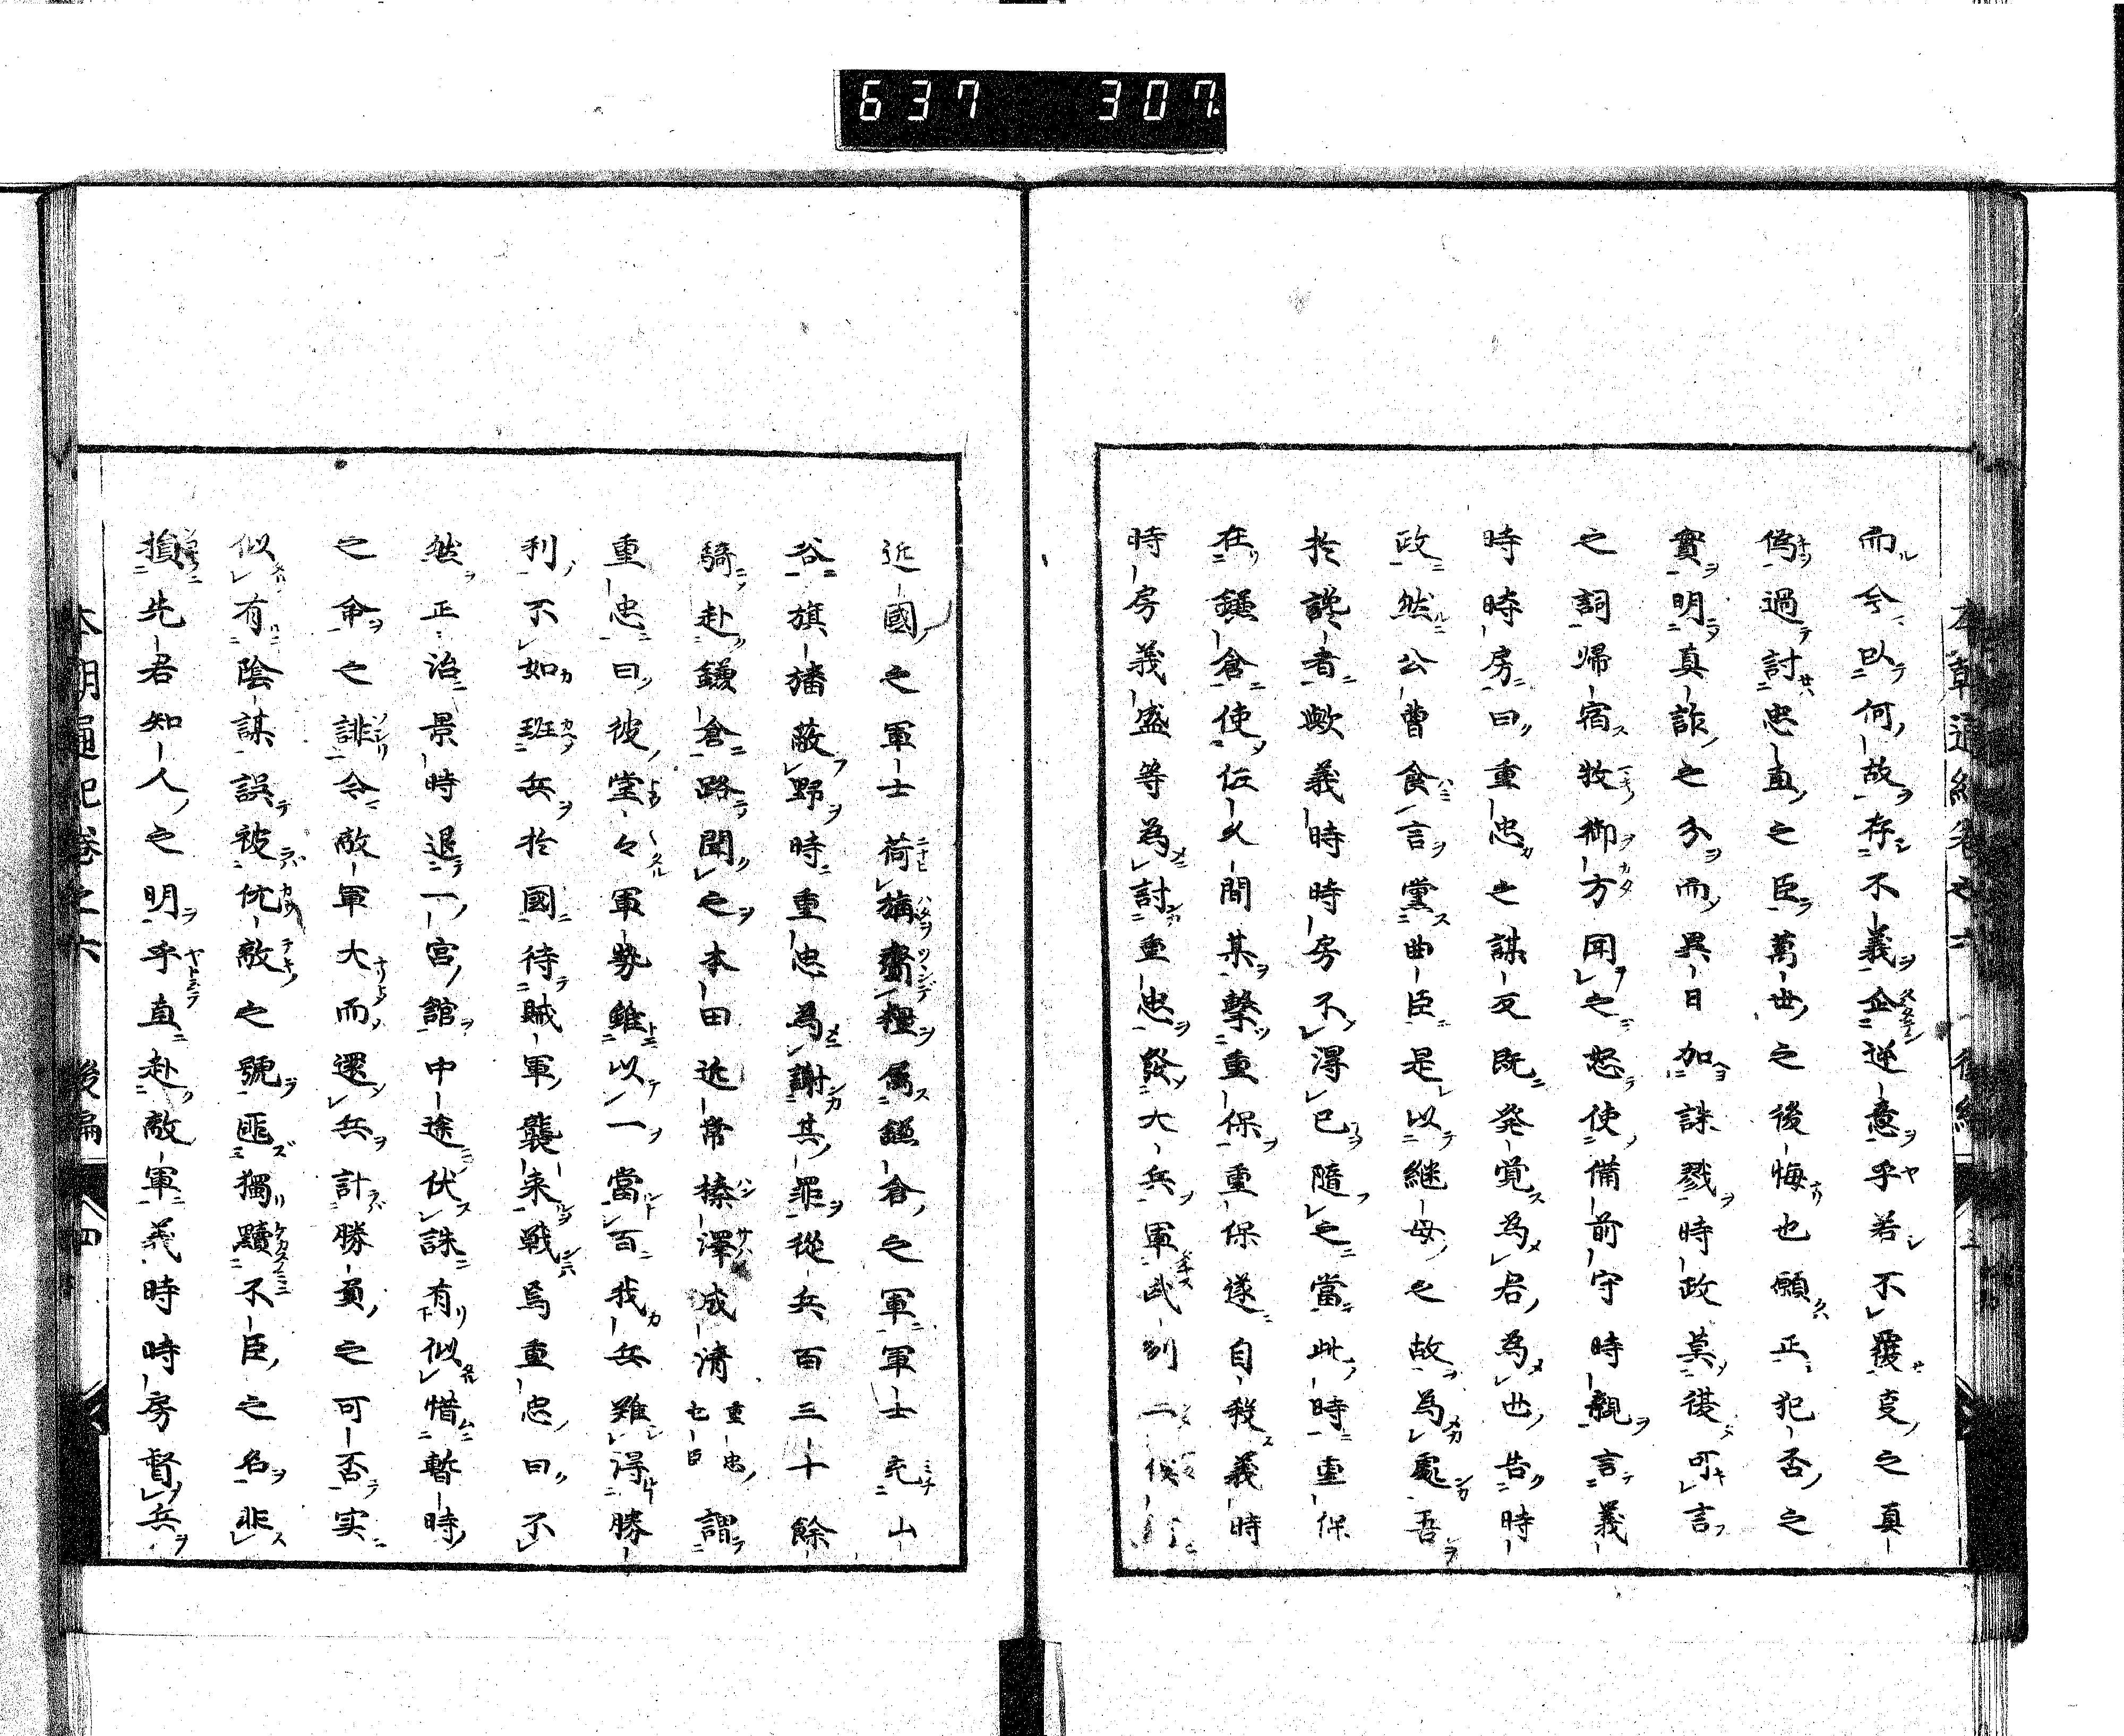 637 307
而今以何故存不義企逆意乎若不覆叓之真
偽過討忠直之臣萬世之後悔也願正犯否之
實明真詐之分而異日加誅戮時政莫後可言
之詞帰宿牧御方聞之怒使備前守時親言義
時時房曰重忠之謀反既発覚為君為世告時
政然公曽食言党曲臣是以継母之故為處吾
於讒者歟義時時房不得已隨之當此時重保
在鎌倉使佐久間某撃重保重保遂自殺義時
時房義盛等為討重忠發大兵軍武列二俣
近國之軍士荷旗齎糧属鎌倉之軍軍士充山
谷旗旛蔽野時重忠為謝其罪従兵百三十餘
騎赴鎌倉路聞之本田近常榛澤成清重忠七臣謂
重忠曰彼堂々軍勢雖以一當百我兵難得勝
利不如班兵於國待賊軍襲来戦焉重忠曰不
然正治景時退一宮館中途伏誅有似惜暫時
之命之誹今敵軍大而還兵計勝負之可否実
似有陰謀誤被仇敵之號匪獨黷不臣之名非
損先君知人之明乎直赴敵軍義時時房督兵
本朝通紀卷之六 後編 四